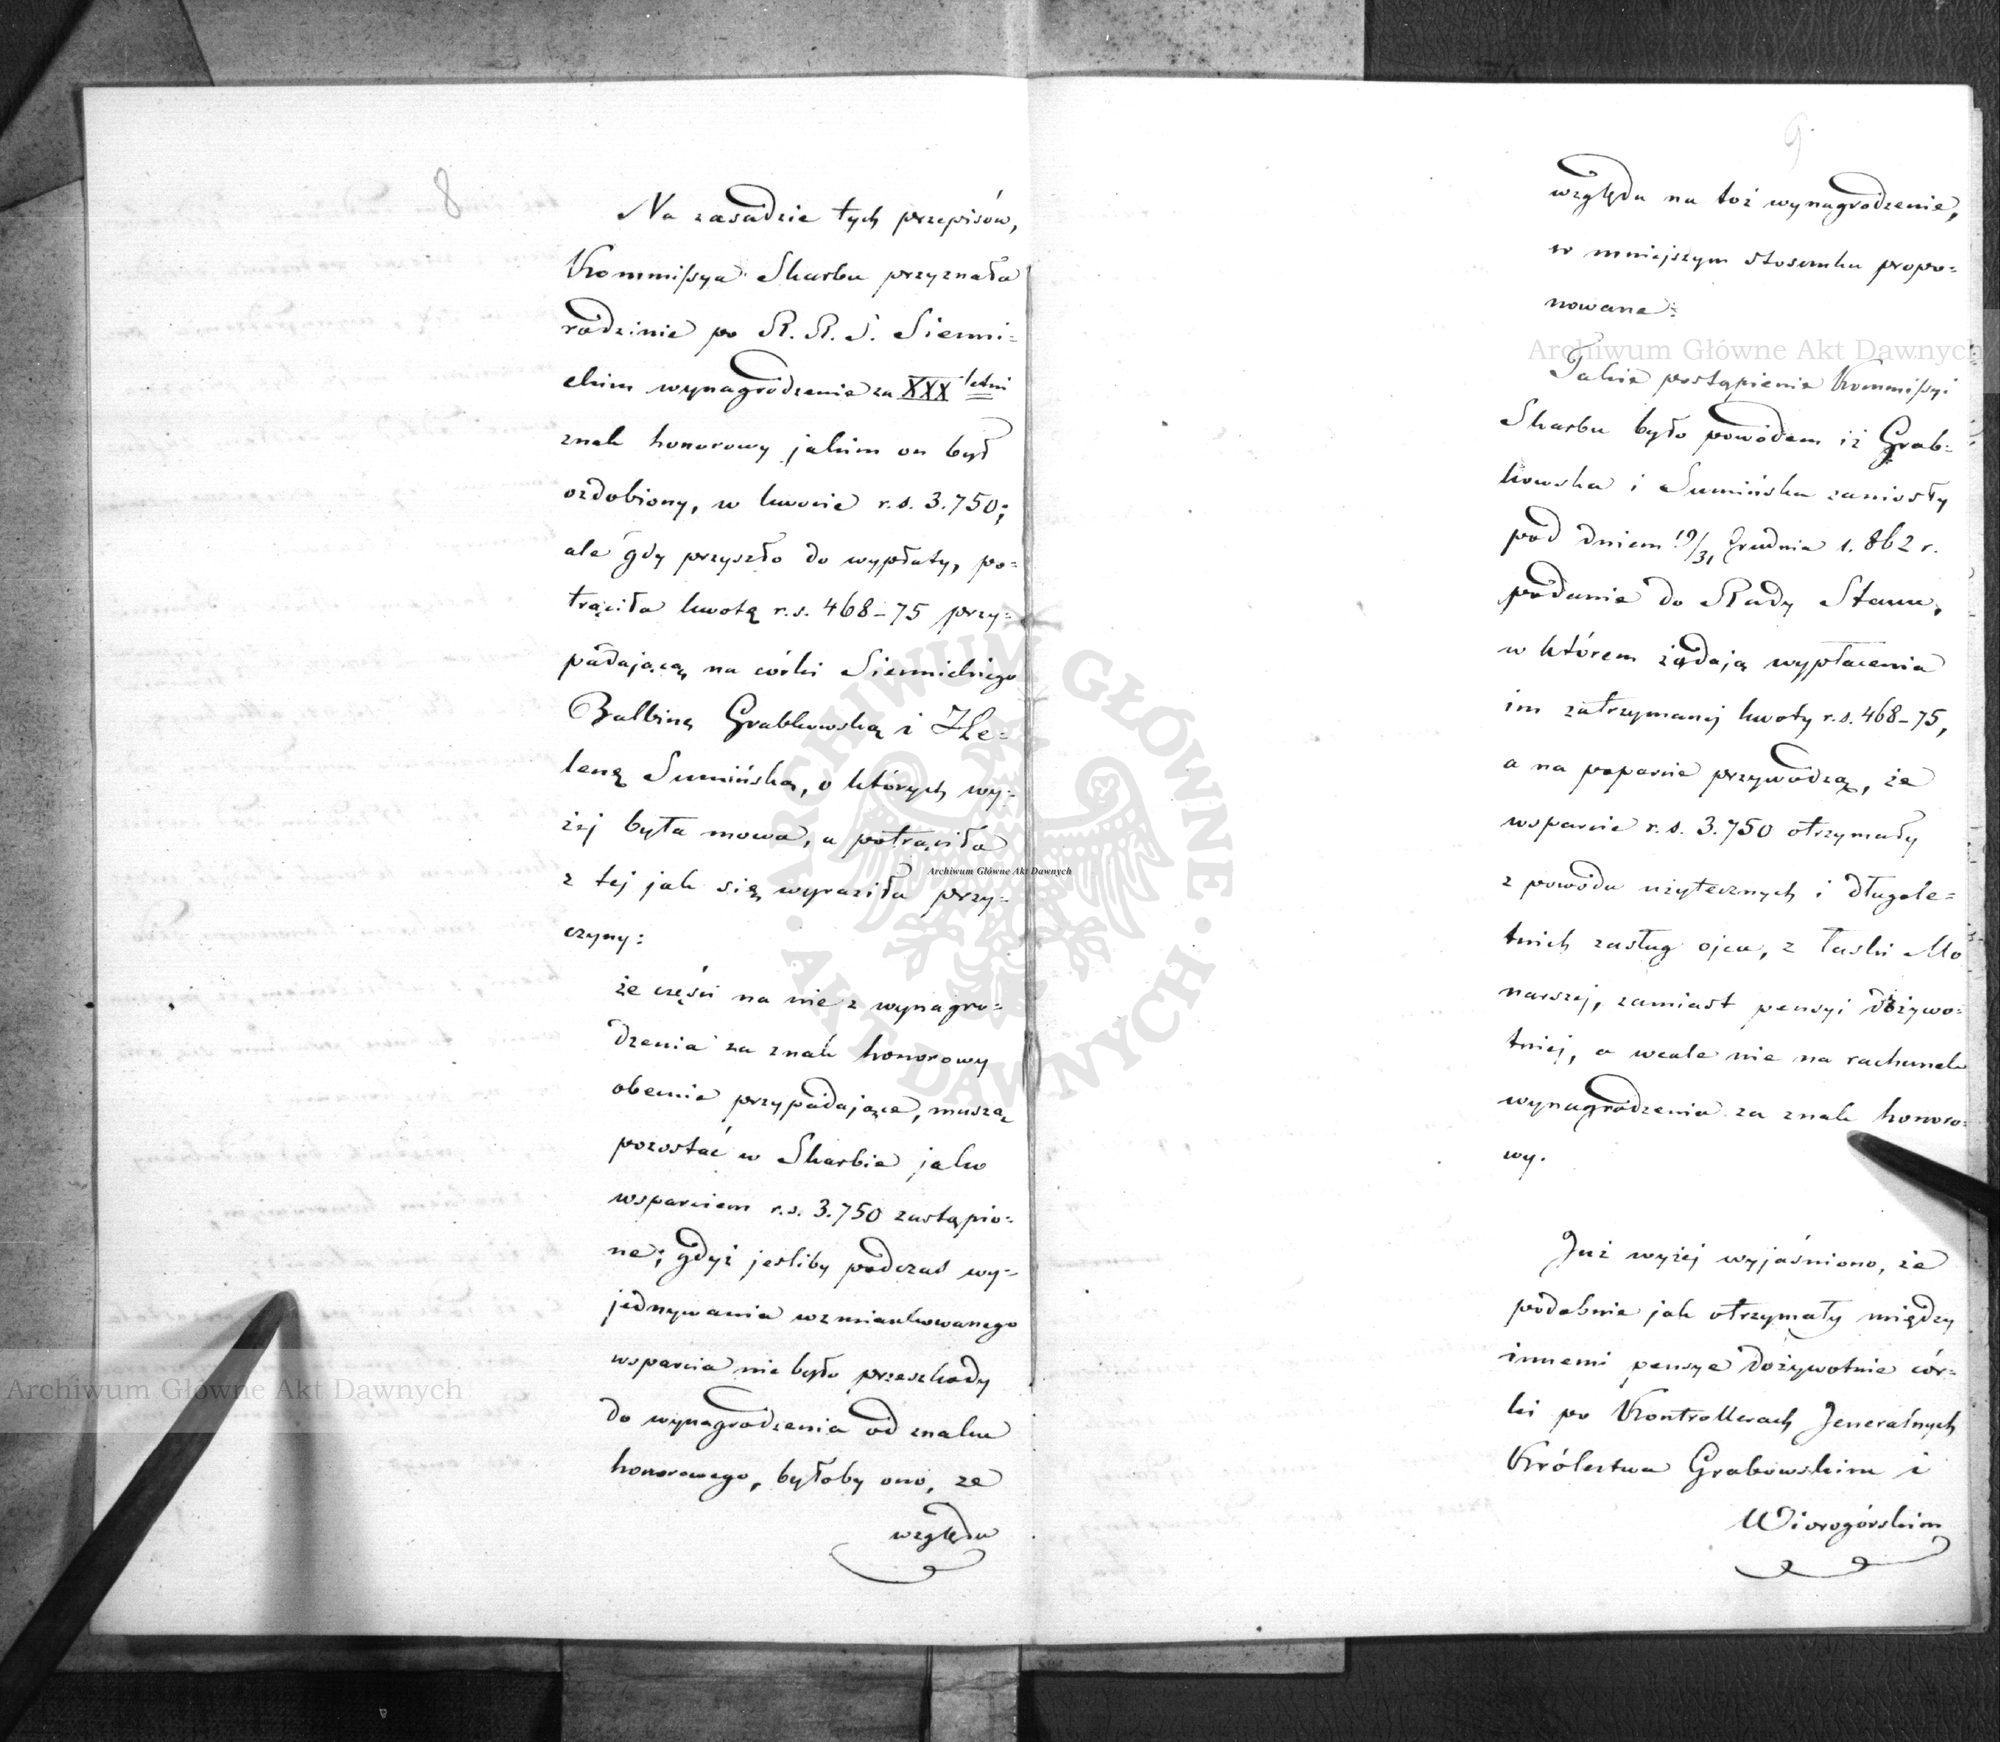 8
Na zasadzie tych przepisów,
Kommissya Skarbu przyznała
rodzinie po R. R. S. Sienni-
ckim wynagrodzenie za XXX letni
znak honorowy jakim on był
ozdobiony, w kwocie r.s. 3.750;
ale gdy przyszło do wypłaty, po-
trąciła kwotę r.s. 468-75 przy-
padającą na córki Siennickiego
Balbinę Grabkowską i He-
lenę Sumińską, o których wy-
żej była mowa, a potrąciła
z tej jak się wyraziła przy-
czyny:
że części na nie z wynagro-
dzenia za znak honorowy
obecnie przypadające, muszą
pozostać w Skarbie jako
wsparciem r.s. 3.750 zastąpio-
ne; gdyż jeśliby podczas wy-
jednywania wzmiankowanego
wsparcia nie było przeszkody
do wynagrodzenia od znaku
honorowego, byłoby ono, ze
względu
9.
względu na toż wynagrodzenie,
w mniejszym stosunku propo-
nowane.
Takie postąpienie Kommissyi
Skarbu było powodem iż Grab-
kowska i Sumińska zaniosły
pod dniem 19/31 Grudnia 1.862 r.
podanie do Rady Stanu,
w którem żądają wypłacenia
im zatrzymanej kwoty r.s. 468-75,
a na poparcie przywodzą, że
wsparcie r.s. 3.750 otrzymały
z powodu użytecznych i długole-
tnich zasług ojca, z łaski Mo
narszej, zamiast pensyi dożywo-
tniej, a wcale nie na rachunek
wynagrodzenia za znak honoro-
wy.
Już wyżej wyjaśniono, że
podobnie jak otrzymały między
innemi pensye dożywotnie cór-
ki po Kontrollerach Jeneralnych
Królestwa Grabowskim i
Wiorogórskim
Archiwum Główne Akt Dawnych
Archiwum Główne Akt Dawnych
Archiwum Główne Akt Dawnych
ARCHIWUM GŁÓWNE · AKT DAWNYCH ·